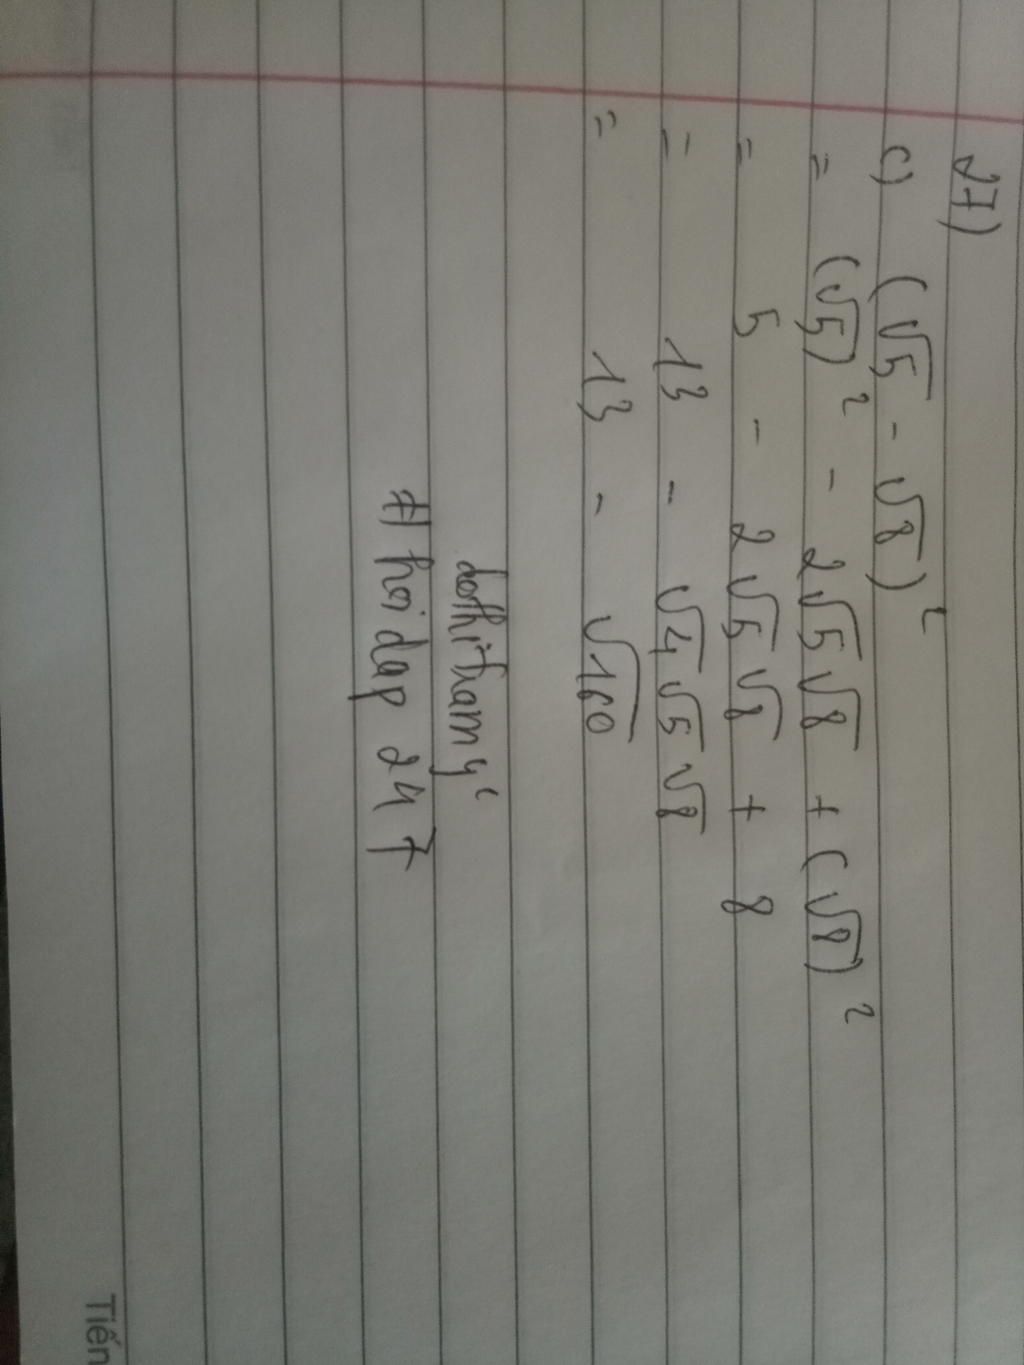 27)
c) (√5 - √8)²
= (√5)² - 2√5√8 + (√8)²
= 5 - 2√5√8 + 8
= 13 - √4√5√8
= 13 - √160
dothitramy
# hoidap 247
Tiến